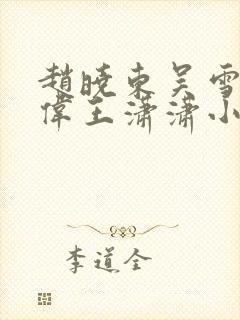 趙曉東吳雪
偉王瀟瀟小
李道全